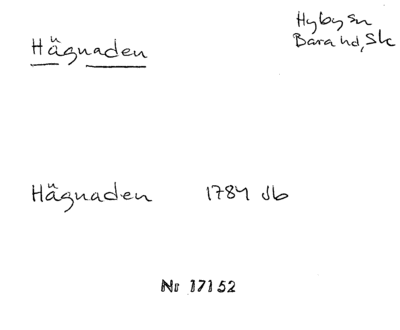 Hägnaden
Hyby sn
Bara hd, Sk
Hägnaden 1784 Jb
Nr 17152